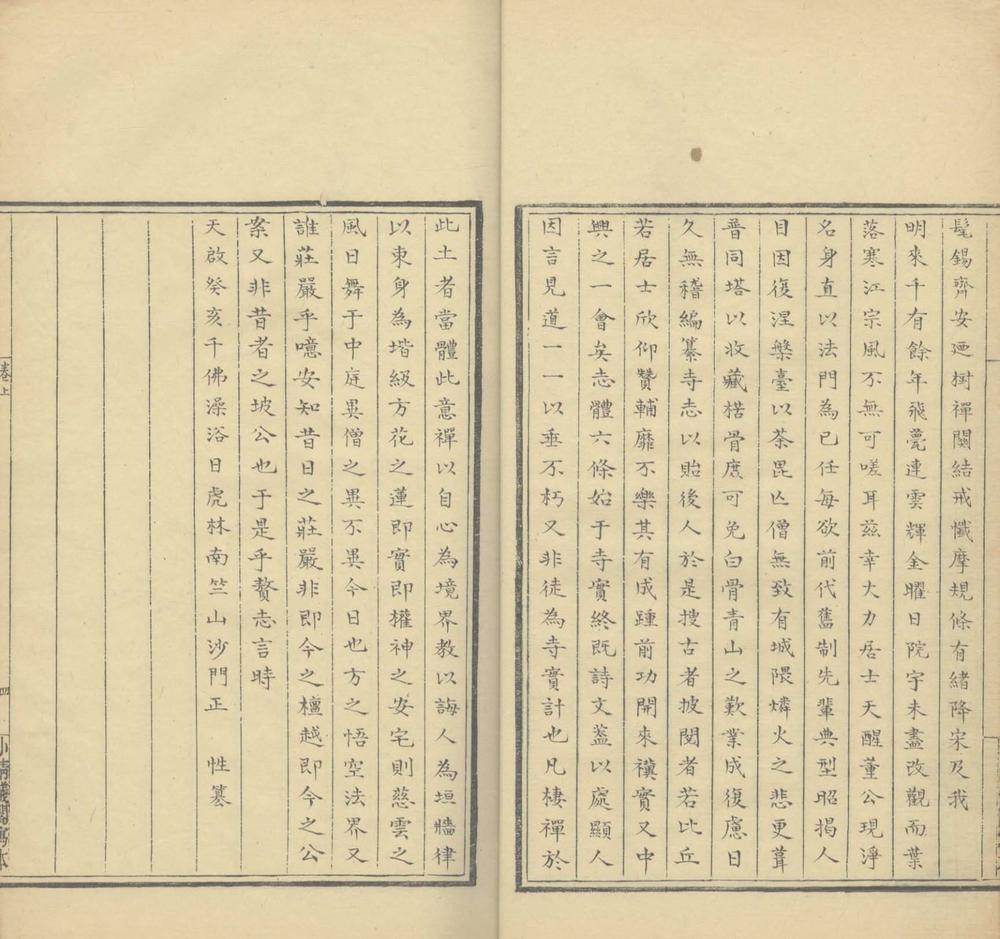 髦錫齊安廼樹禪關結戒懺摩規條有緒降宋及我
明來千有餘年飛甍連雲輝金曜日院宇未盡改觀而葉
落寒江宗風不無可嗟耳茲幸大力居士天醒董公現淨
名身直以法門為已任每欲前代舊制先輩典型昭揭人
目因復湼槃臺以荼毘亾僧無致有城隈燐火之悲更葺
普同塔以收藏楛骨庶可免白骨青山之歎業成復慮日
久無稽編纂寺志以貽後人於是搜古者披閱者若比丘
若居士欣仰贊輔靡不樂其有成踵前功開來禩實又中
興之一會矣志體六條始于寺實終既詩文葢以處顯人
因言見道一一以垂不朽又非徒為寺實計也凡棲禪於
此土者當體此意禪以自心為境界教以誨人為垣牆律
以束身為堦級方花之蓮即實即權神之安宅則慈雲之
風日舞于中庭異僧之異不異今日也方之悟空法界又
誰莊嚴乎噫安知昔日之莊嚴非即今之檀越即今之公
案又非昔者之坡公也于是乎贅志言時
天啟癸亥千佛澡浴日虎林南竺山沙門正 性 纂
卷上
四
小清儀閣寫本